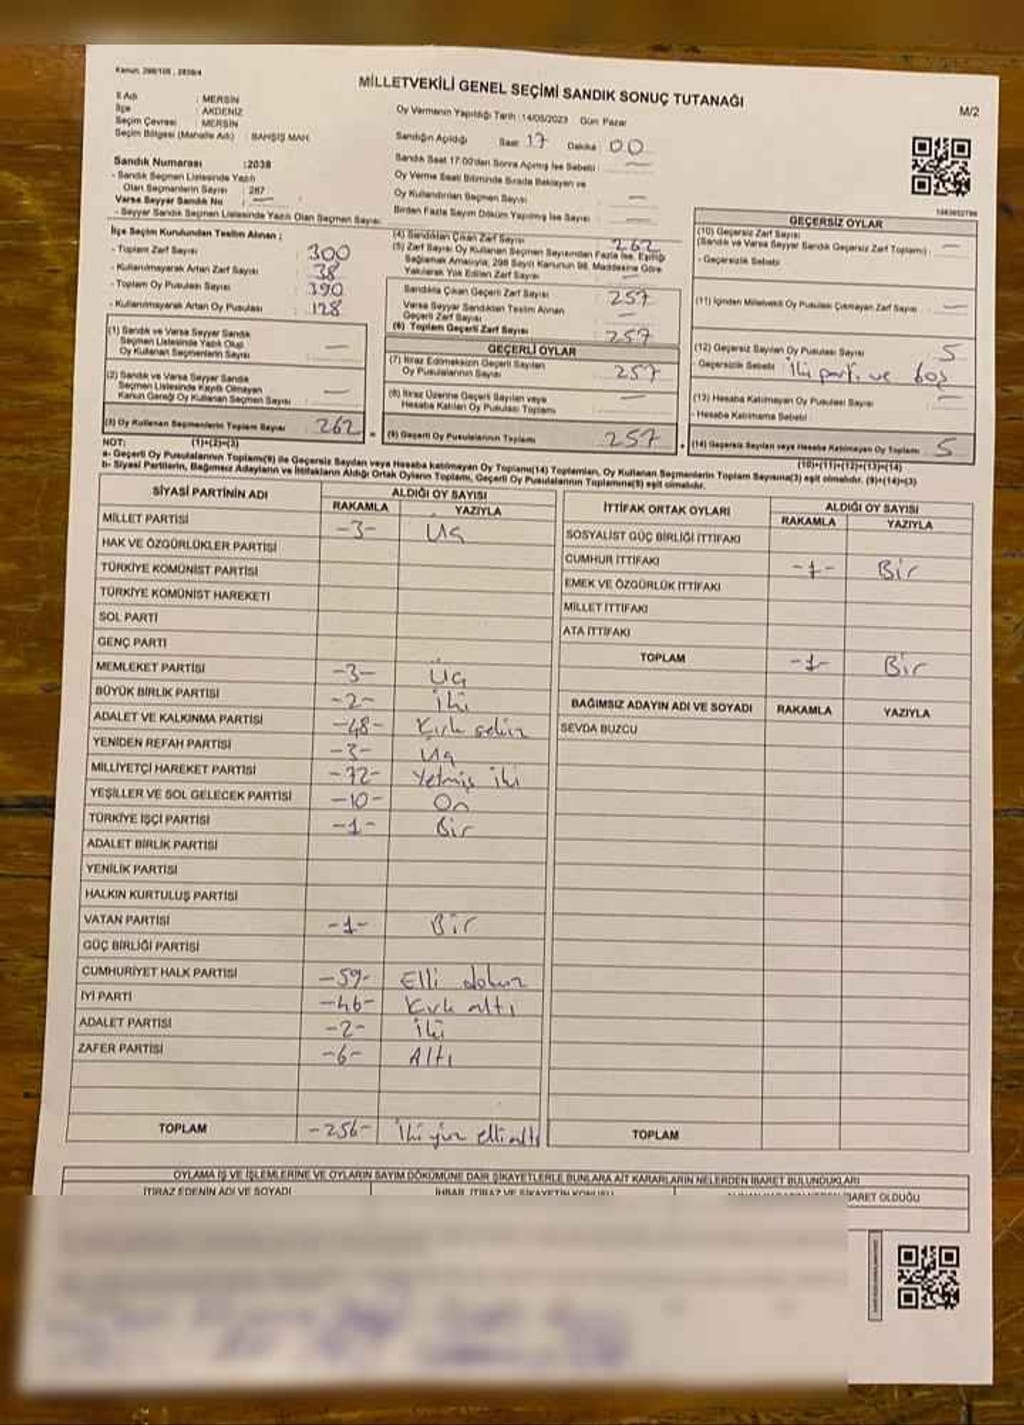 Kanun: 298/105 , 2839/4
MİLLETVEKİLİ GENEL SEÇİMİ SANDIK SONUÇ TUTANAĞI
M/2
İl Adı : MERSİN
İlçe : AKDENİZ
Seçim Çevresi : MERSİN
Seçim Bölgesi (Mahalle Adı) : BAHŞİŞ MAH.
Oy Vermenin Yapıldığı Tarih : 14/05/2023 Gün: Pazar
Sandığın Açıldığı Saat 17 Dakika 00
Sandık Saat 17:00'den Sonra Açılmış İse Sebebi : —
Oy Verme Saati Bitiminde Sırada Bekleyen ve
Oy Kullandırılan Seçmen Sayısı : —
Birden Fazla Sayım Döküm Yapılmış İse Sayısı : —
Sandık Numarası : 2038
- Sandık Seçmen Listesinde Yazılı
Olan Seçmenlerin Sayısı : 287
Varsa Seyyar Sandık No : —
- Seyyar Sandık Seçmen Listesinde Yazılı Olan Seçmen Sayısı:
İlçe Seçim Kurulundan Teslim Alınan ;
- Toplam Zarf Sayısı : 300
- Kullanılmayarak Artan Zarf Sayısı : 38
- Toplam Oy Pusulası Sayısı : 390
- Kullanılmayarak Artan Oy Pusulası : 128
(1) Sandık ve Varsa Seyyar Sandık
Seçmen Listesinde Yazılı Olup
Oy Kullanan Seçmenlerin Sayısı —
(2) Sandık ve Varsa Seyyar Sandık
Seçmen Listesinde Kayıtlı Olmayan
Kanun Gereği Oy Kullanan Seçmen Sayısı —
(3) Oy Kullanan Seçmenlerin Toplam Sayısı 262
(1)+(2)=(3)
(4) Sandıktan Çıkan Zarf Sayısı 262
(5) Zarf Sayısı Oy Kullanan Seçmen Sayısından Fazla İse, Eşitliği
Sağlamak Amacıyla, 298 Sayılı Kanunun 98. Maddesine Göre
Yakılarak Yok Edilen Zarf Sayısı —
Sandıkta Çıkan Geçerli Zarf Sayısı 257
Varsa Seyyar Sandıktan Teslim Alınan
Geçerli Zarf Sayısı —
(6) Toplam Geçerli Zarf Sayısı 257
GEÇERLİ OYLAR
(7) İtiraz Edilmeksizin Geçerli Sayılan
Oy Pusulalarının Sayısı 257
(8) İtiraz Üzerine Geçerli Sayılan veya
Hesaba Katılan Oy Pusulası Toplamı —
= (9) Geçerli Oy Pusulalarının Toplamı 257
GEÇERSİZ OYLAR
(10) Geçersiz Zarf Sayısı
(Sandık ve Varsa Seyyar Sandık Geçersiz Zarf Toplamı) : —
- Geçersizlik Sebebi
(11) İçinden Milletvekili Oy Pusulası Çıkmayan Zarf Sayısı —
(12) Geçersiz Sayılan Oy Pusulası Sayısı 5
- Geçersizlik Sebebi İki parti ve boş
(13) Hesaba Katılmayan Oy Pusulası Sayısı —
- Hesaba Katılmama Sebebi
+ (14) Geçersiz Sayılan veya Hesaba Katılmayan Oy Toplamı 5
(10)+(11)+(12)+(13)=(14)
NOT:
a- Geçerli Oy Pusulalarının Toplamı(9) ile Geçersiz Sayılan veya Hesaba katılmayan Oy Toplamı(14) Toplamları, Oy Kullanan Seçmenlerin Toplam Sayısına(3) eşit olmalıdır. (9)+(14)=(3)
b- Siyasi Partilerin, Bağımsız Adayların ve İttifakların Aldığı Ortak Oyların Toplamı, Geçerli Oy Pusulalarının Toplamına(9) eşit olmalıdır.
SİYASİ PARTİNİN ADI ALDIĞI OY SAYISI
RAKAMLA YAZIYLA
MİLLET PARTİSİ -3- Üç
HAK VE ÖZGÜRLÜKLER PARTİSİ
TÜRKİYE KOMÜNİST PARTİSİ
TÜRKİYE KOMÜNİST HAREKETİ
SOL PARTİ
GENÇ PARTİ
MEMLEKET PARTİSİ -3- Üç
BÜYÜK BİRLİK PARTİSİ -2- İki
ADALET VE KALKINMA PARTİSİ -48- Kırk sekiz
YENİDEN REFAH PARTİSİ -3- Üç
MİLLİYETÇİ HAREKET PARTİSİ -72- Yetmiş iki
YEŞİLLER VE SOL GELECEK PARTİSİ -10- On
TÜRKİYE İŞÇİ PARTİSİ -1- Bir
ADALET BİRLİK PARTİSİ
YENİLİK PARTİSİ
HALKIN KURTULUŞ PARTİSİ
VATAN PARTİSİ -1- Bir
GÜÇ BİRLİĞİ PARTİSİ
CUMHURİYET HALK PARTİSİ -59- Elli dokuz
İYİ PARTİ -46- Kırk altı
ADALET PARTİSİ -2- İki
ZAFER PARTİSİ -6- Altı
TOPLAM -256- İki yüz elli altı
İTTİFAK ORTAK OYLARI ALDIĞI OY SAYISI
RAKAMLA YAZIYLA
SOSYALİST GÜÇ BİRLİĞİ İTTİFAKI
CUMHUR İTTİFAKI -1- Bir
EMEK VE ÖZGÜRLÜK İTTİFAKI
MİLLET İTTİFAKI
ATA İTTİFAKI
TOPLAM -1- Bir
BAĞIMSIZ ADAYIN ADI VE SOYADI RAKAMLA YAZIYLA
SEVDA BUZCU
TOPLAM
OYLAMA İŞ VE İŞLEMLERİNE VE OYLARIN SAYIM DÖKÜMÜNE DAİR ŞİKAYETLERLE BUNLARA AİT KARARLARIN NELERDEN İBARET BULUNDUKLARI
İTİRAZ EDENİN ADI VE SOYADI İHBAR, İTİRAZ VE ŞİKAYETİN KONUSU İBARET OLDUĞU